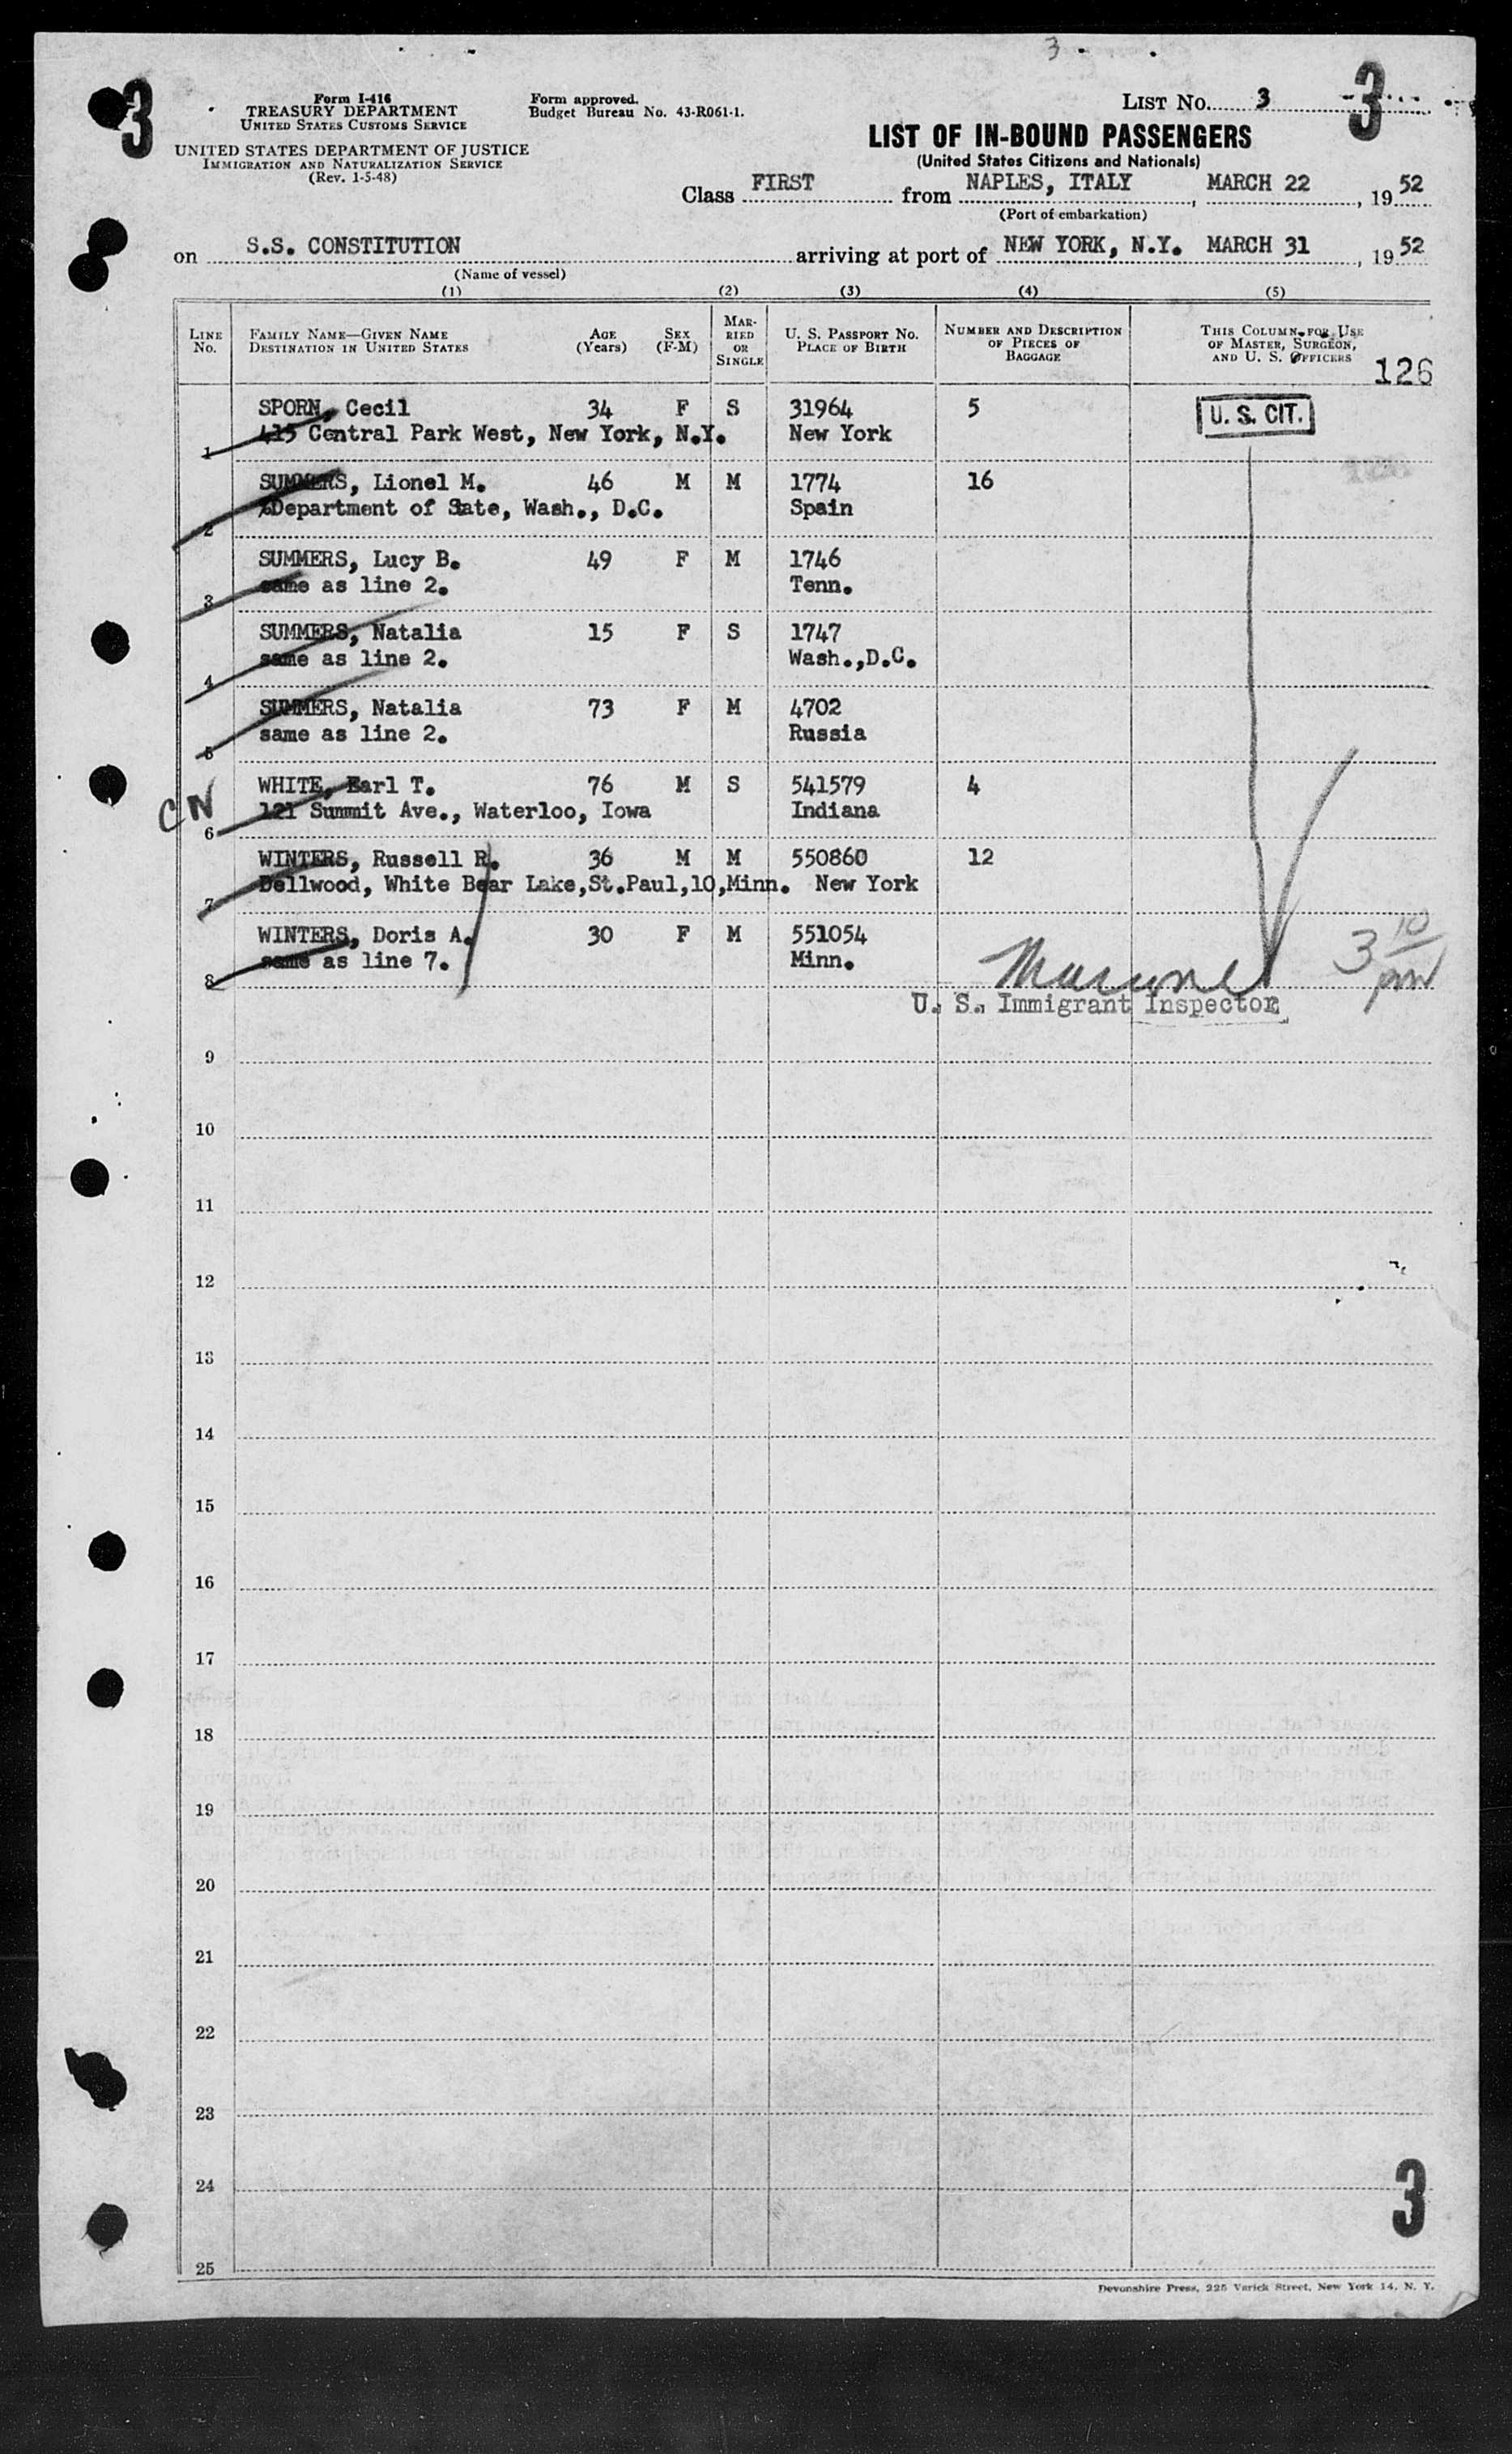 3
3
3
Form I-416
TREASURY DEPARTMENT
UNITED STATES CUSTOMS SERVICE
UNITED STATES DEPARTMENT OF JUSTICE
IMMIGRATION AND NATURALIZATION SERVICE
(Rev. 1-5-48)
Form approved.
Budget Bureau No. 43-R061-1.
LIST NO. 3
LIST OF IN-BOUND PASSENGERS
(United States Citizens and Nationals)
Class FIRST from NAPLES, ITALY, MARCH 22, 1952
(Port of embarkation)
on S.S. CONSTITUTION arriving at port of NEW YORK, N.Y. MARCH 31, 1952
(Name of vessel)
(1) (2) (3) (4) (5)
LINE NO. FAMILY NAME—GIVEN NAME DESTINATION IN UNITED STATES AGE (Years) SEX (F-M) MARRIED OR SINGLE U. S. PASSPORT NO. PLACE OF BIRTH NUMBER AND DESCRIPTION OF PIECES OF BAGGAGE THIS COLUMN FOR USE OF MASTER, SURGEON, AND U. S. OFFICERS
126
SPORN, Cecil 34 F S 31964 5 U. S. CIT.
1 415 Central Park West, New York, N.Y. New York
SUMMERS, Lionel M. 46 M M 1774 16
2 %Department of Sate, Wash., D.C. Spain
SUMMERS, Lucy B. 49 F M 1746
3 same as line 2. Tenn.
SUMMERS, Natalia 15 F S 1747
4 same as line 2. Wash.,D.C.
SUMMERS, Natalia 73 F M 4702
5 same as line 2. Russia
CN
WHITE, Earl T. 76 M S 541579 4
6 121 Summit Ave., Waterloo, Iowa Indiana
WINTERS, Russell R. 36 M M 550860 12
7 Dellwood, White Bear Lake,St.Paul,10,Minn. New York
WINTERS, Doris A. 30 F M 551054
8 same as line 7. Minn.
3 10 pm
U. S. Immigrant Inspector
9
10
11
12
13
14
15
16
17
18
19
20
21
22
23
24
25
3
Devonshire Press, 225 Varick Street, New York 14, N. Y.